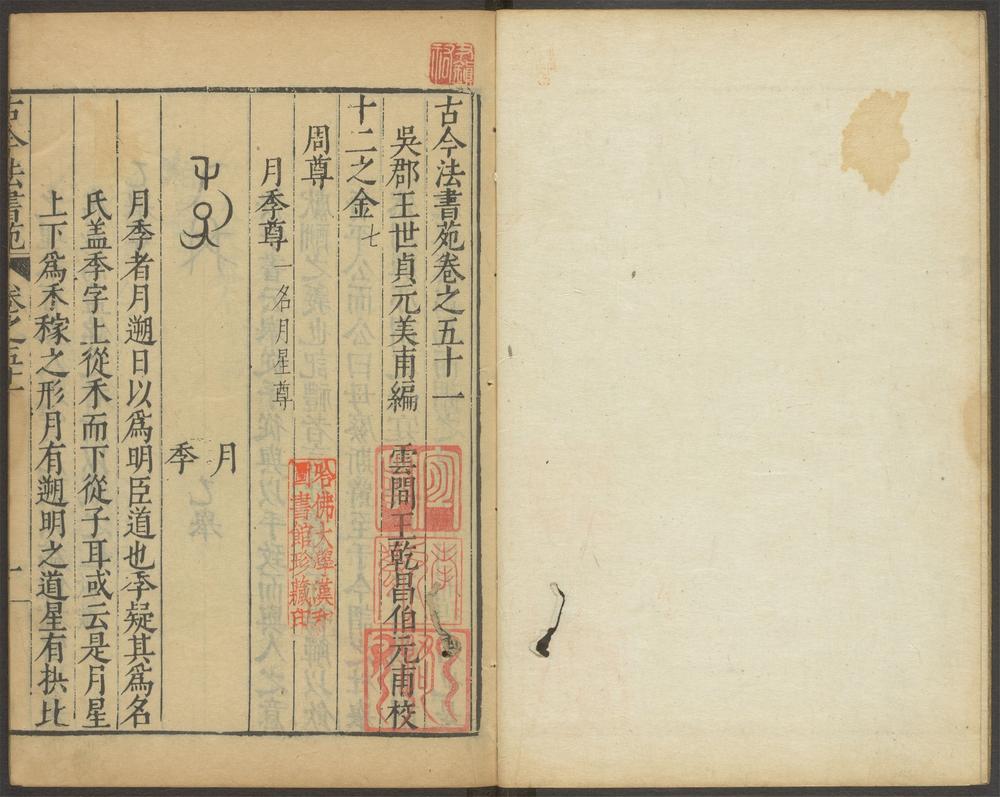 古今法書苑卷之五十一
吳郡王世貞元美甫編 雲間王乾昌伯元甫校
十二之金七
周尊
月季尊一名月星尊
月
季
月季者月遡日以爲明臣道也季疑其爲名
氏盖季字上從禾而下從子耳或云是月星
上下爲禾稼之形月有遡明之道星有拱比
古今法書苑 卷之五十一 一
哈佛大學漢和
圖書館珍藏印